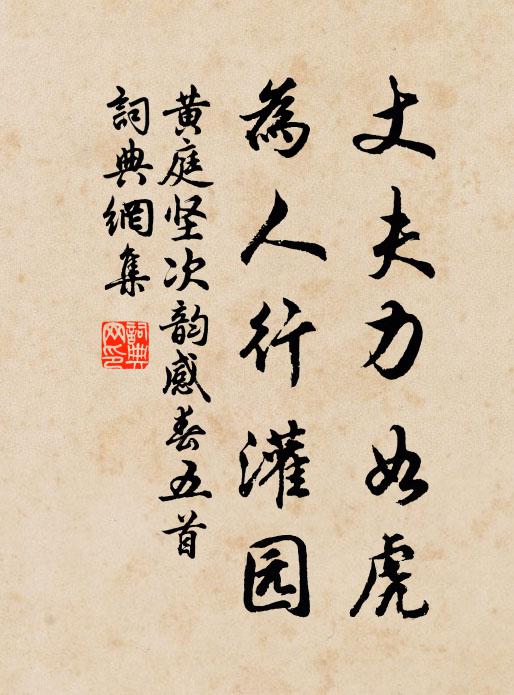 丈夫力如虎
為人行灌园
黄庭坚次韵感春五首
詞典網集
詞典
网印